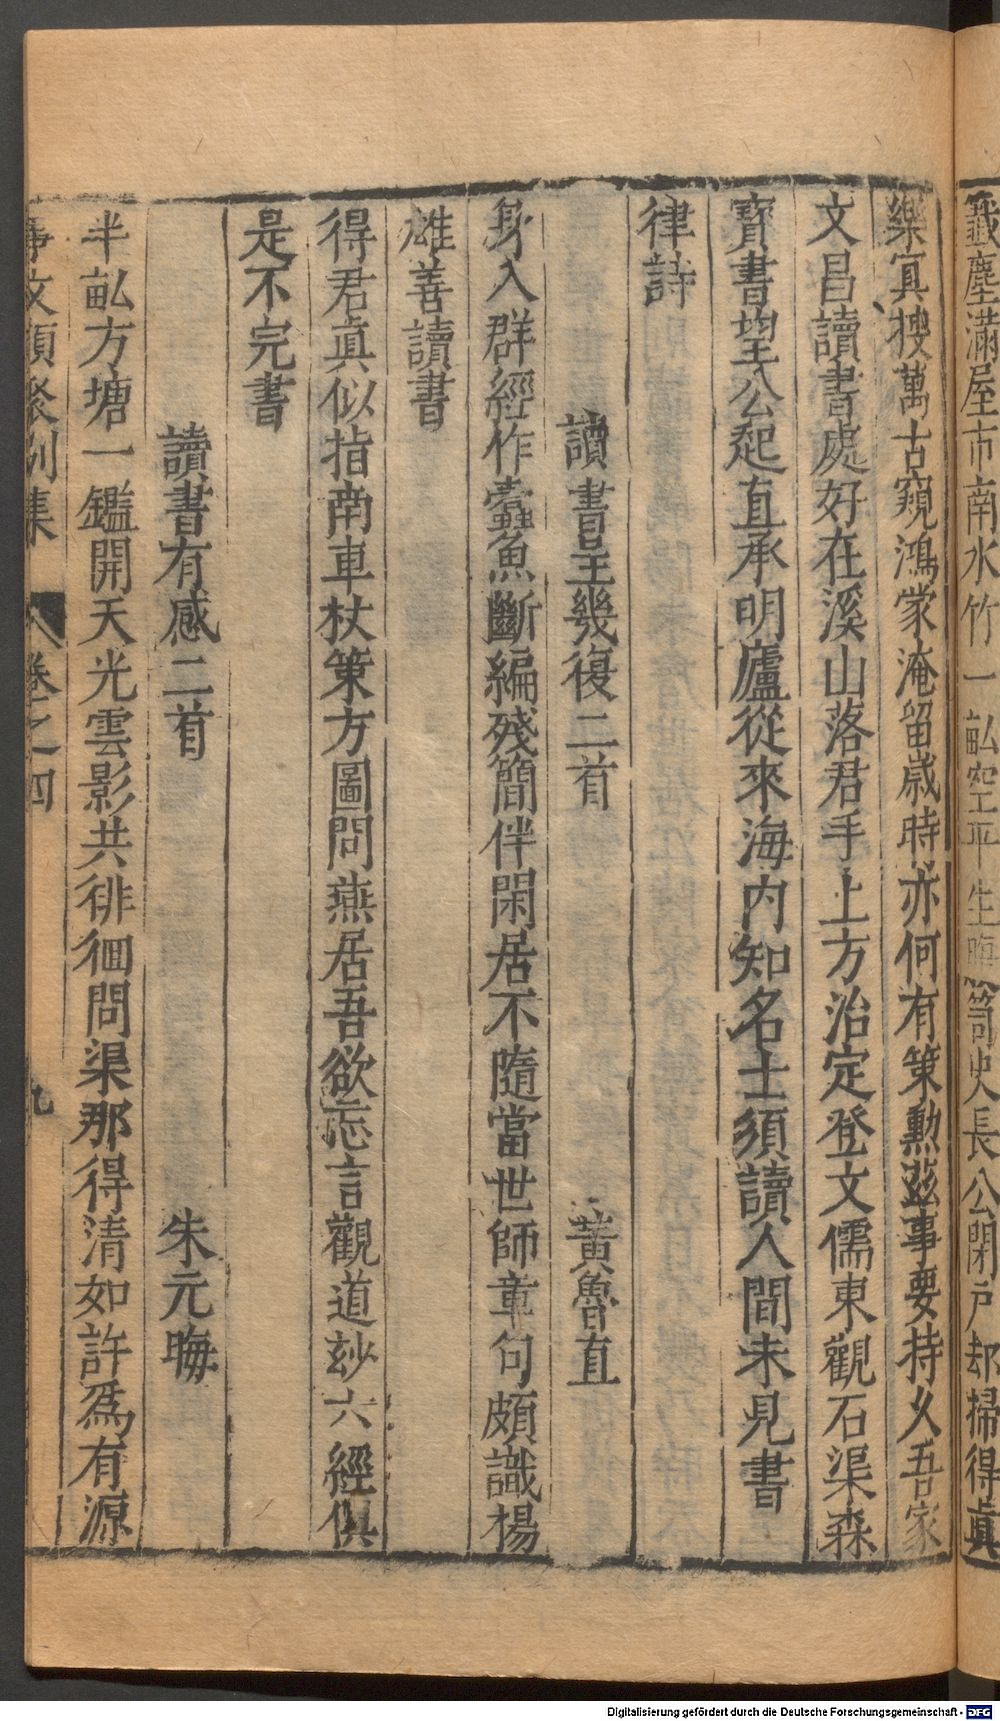 籤塵滿屋市南水竹一畝空平生晦笥史長公閉戶却掃得眞
樂冥搜萬古窺鴻蒙淹留歳時亦何有策勲兹事要持久吾家
文昌讀書處好在溪山落君手上方治定登文儒東觀石渠森
寶書望公起直承明廬從來海内知名士須讀人間未見書
律詩
讀書呈幾復二首 黄魯直
身入群經作蠹魚斷編殘簡伴閑居不隨當世師章句頗識楊
雄善讀書
得君眞似指南車杖策方圖問燕居吾欲忘言觀道玅六經俱
是不完書
讀書有感二首 朱元晦
半畝方塘一鑑開天光雲影共徘徊問渠那得清如許爲有源
事文類聚别集 卷之四 九
Digitalisierung gefördert durch die Deutsche Forschungsgemeinschaft - DFG